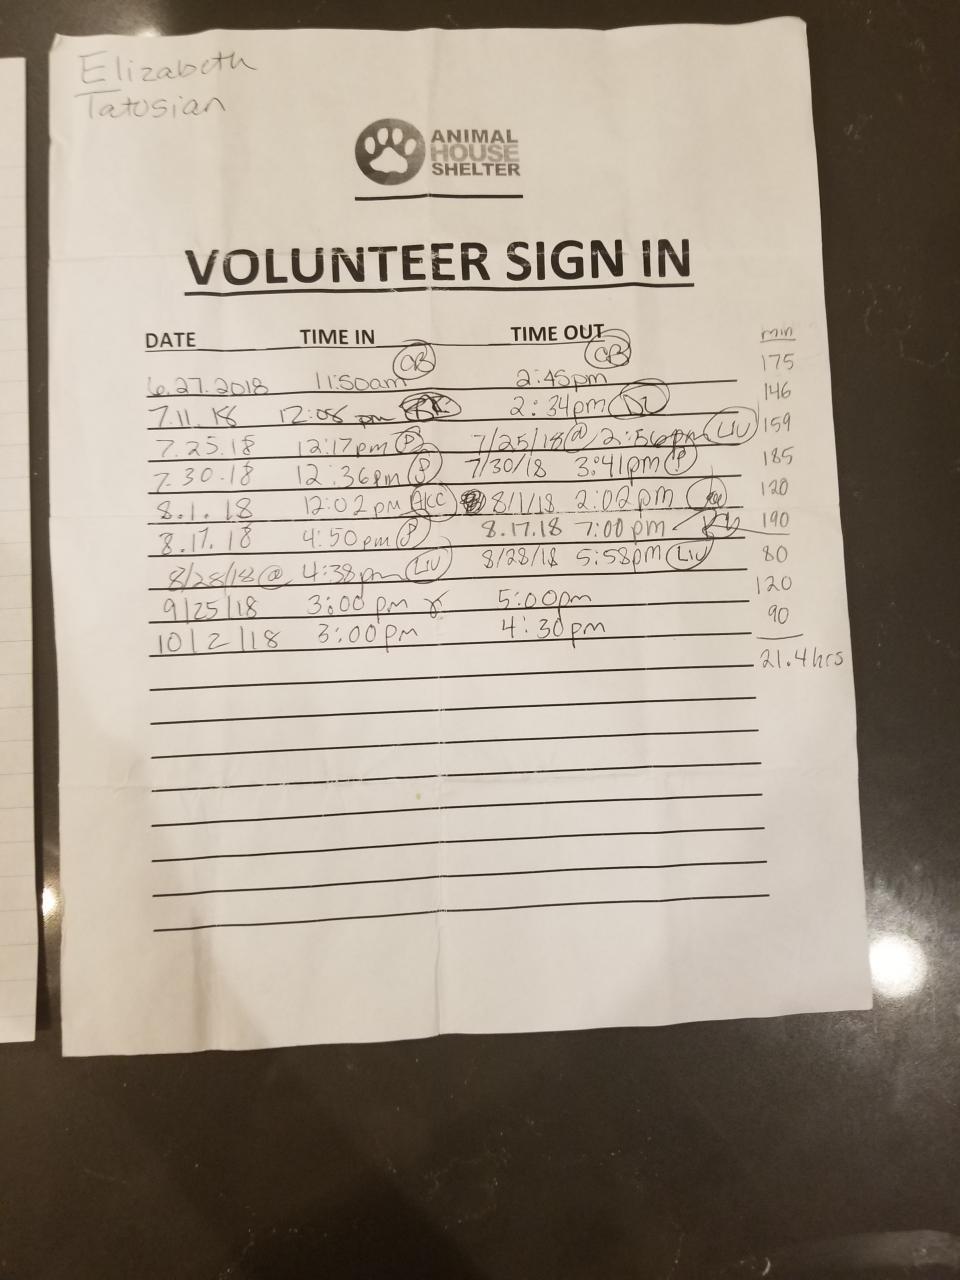 Elizabeth
Tatosian
ANIMAL
HOUSE
SHELTER
VOLUNTEER SIGN IN
DATE TIME IN TIME OUT min
CB CB
6.27.2018 11:50am 2:45pm 175
7.11.18 12:08 pm 2:34pm 146
7.25.18 12:17pm P 7/25/18 @ 2:56pm LIV 159
7.30.18 12:36pm P 7/30/18 3:41pm P 185
8.1.18 12:02 pm ACC 8/1/18 2:02pm 120
8.17.18 4:50pm P 8.17.18 7:00pm 190
8/28/18 @ 4:38pm LIV 8/28/18 5:58pm LIV 80
9/25/18 3:00pm 5:00pm 120
10/2/18 3:00pm 4:30pm 90
21.4hrs